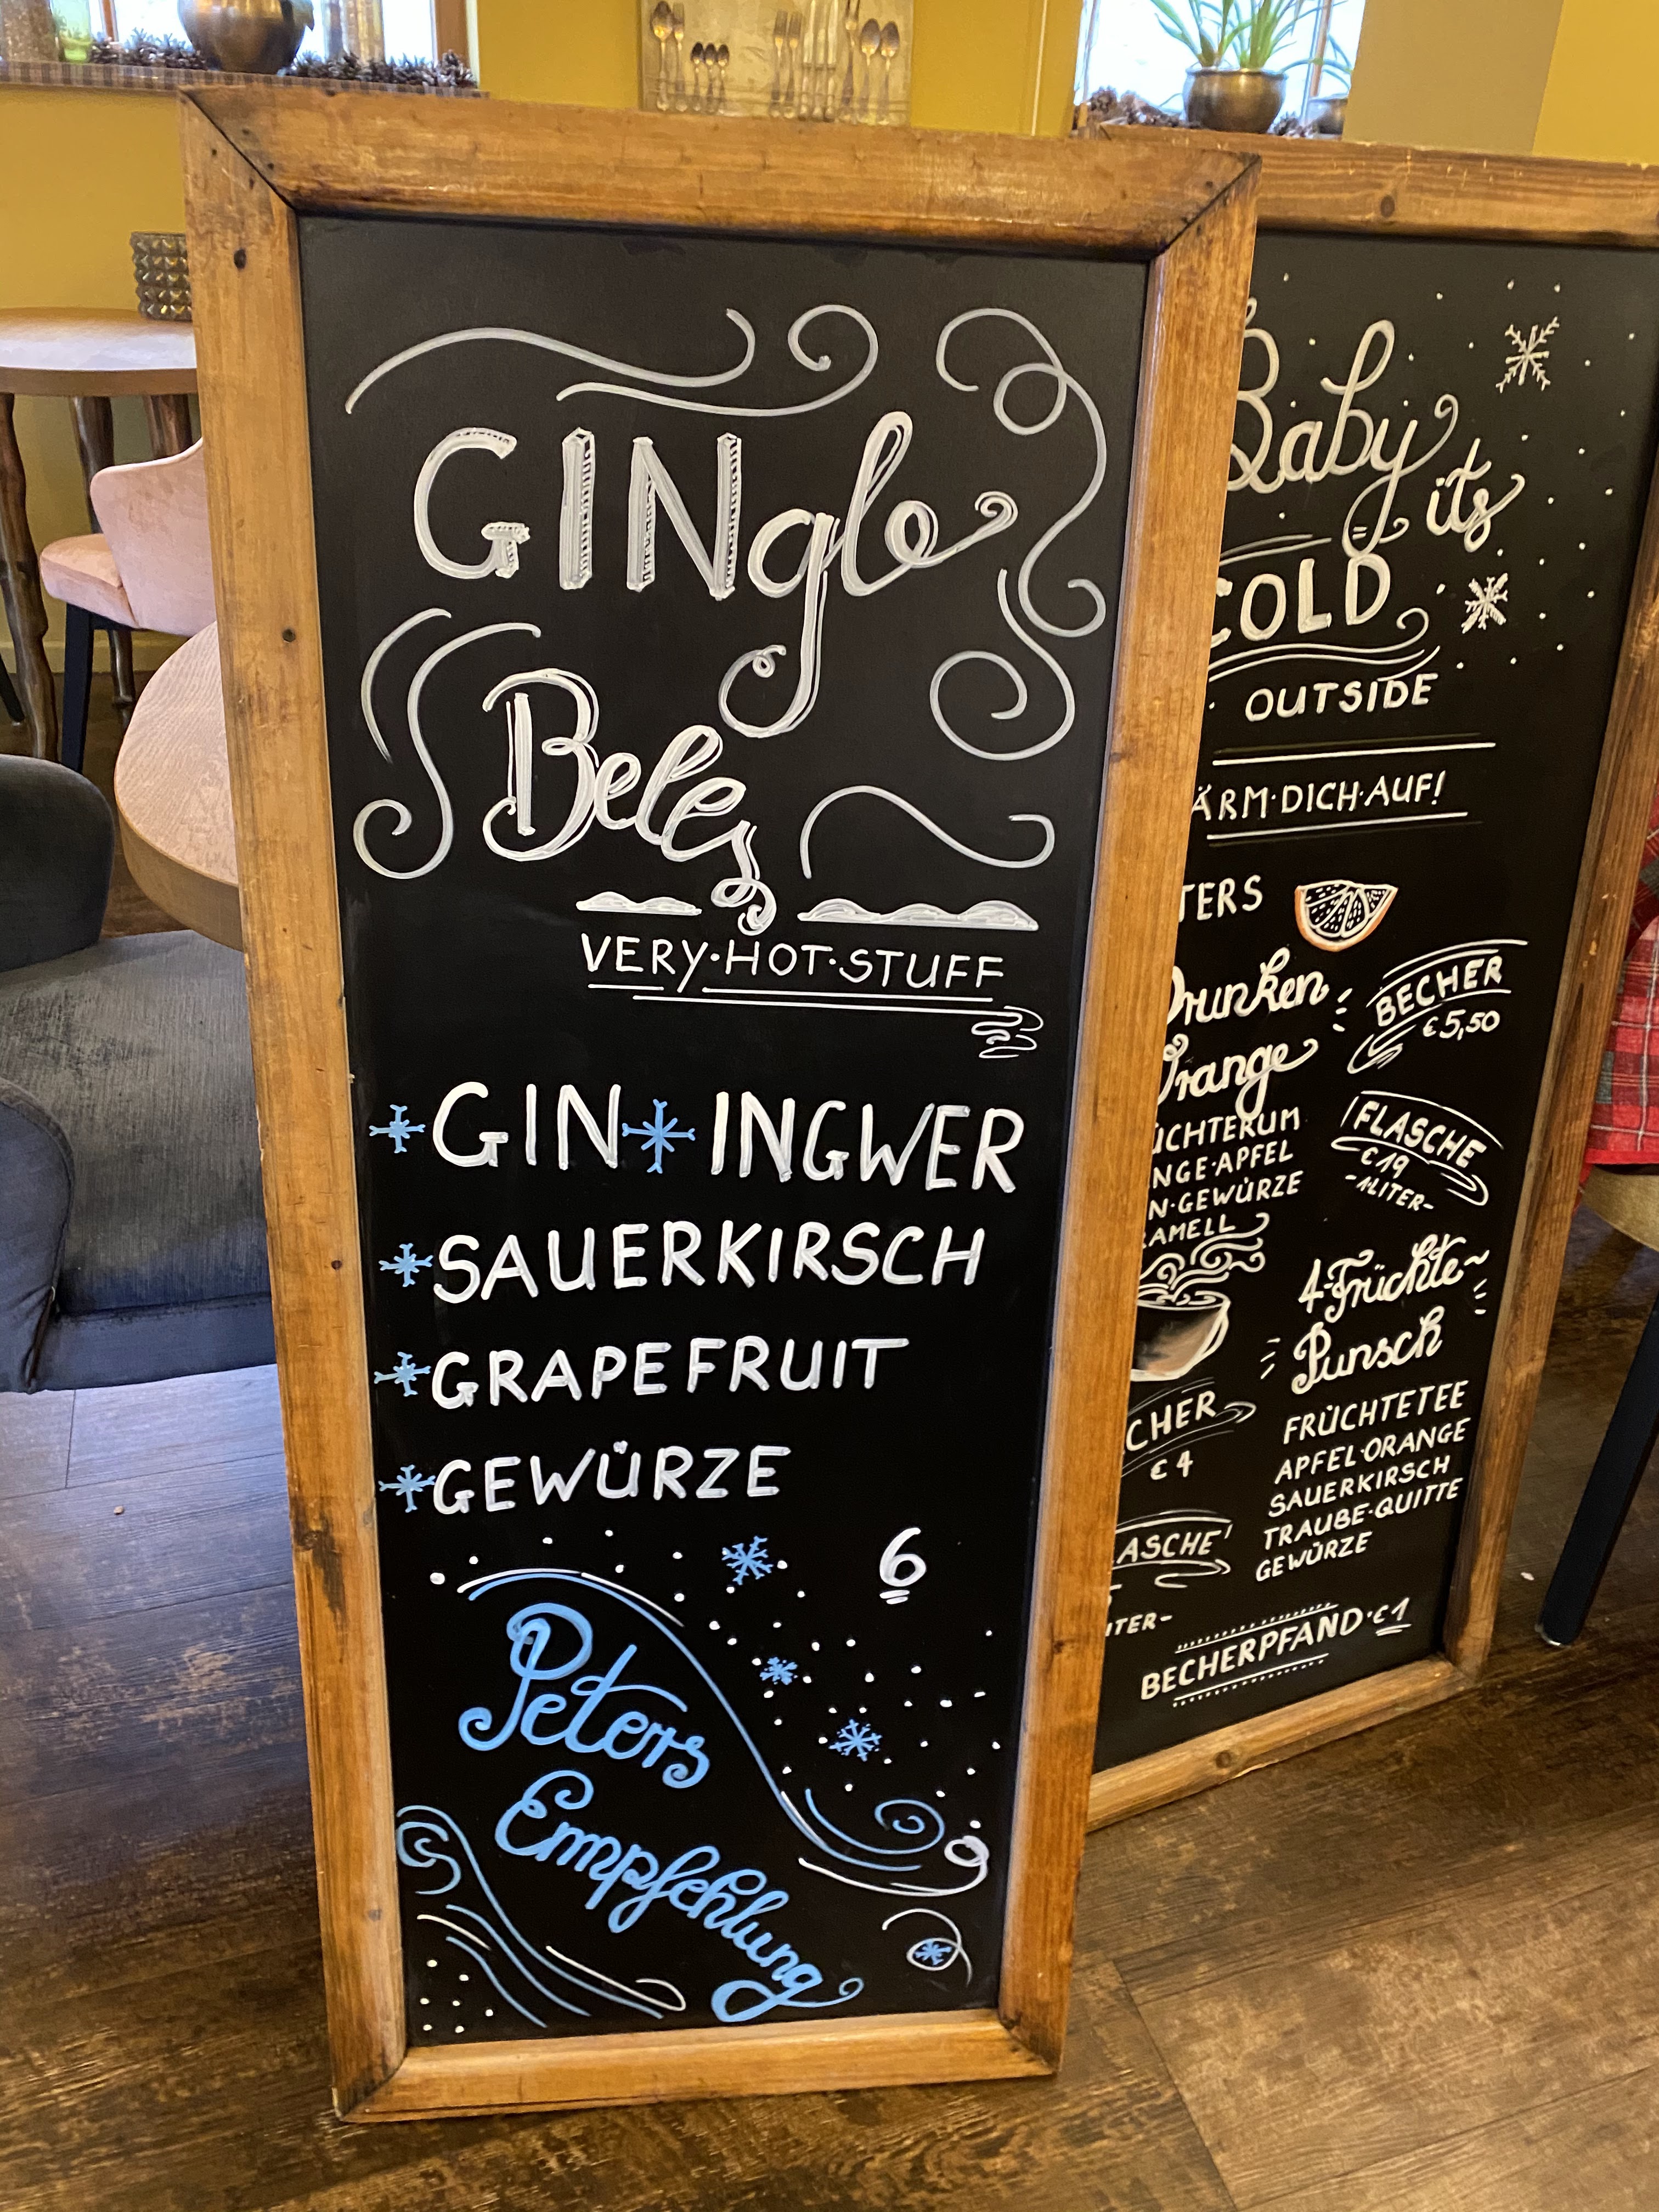 GINgle
Bells
VERY·HOT·STUFF
GIN INGWER
SAUERKIRSCH
GRAPEFRUIT
GEWÜRZE
6
Peters
Empfehlung
Baby
its
COLD
OUTSIDE
ÄRM·DICH·AUF!
TERS
Drunken
Orange
ÜCHTERUM
NGE·APFEL
N·GEWÜRZE
AMELL
BECHER
€5,50
FLASCHE
€19
-1LITER-
CHER
€4
ASCHE
ITER-
4-Früchte-
Punsch
FRÜCHTETEE
APFEL·ORANGE
SAUERKIRSCH
TRAUBE·QUITTE
GEWÜRZE
BECHERPFAND·€1